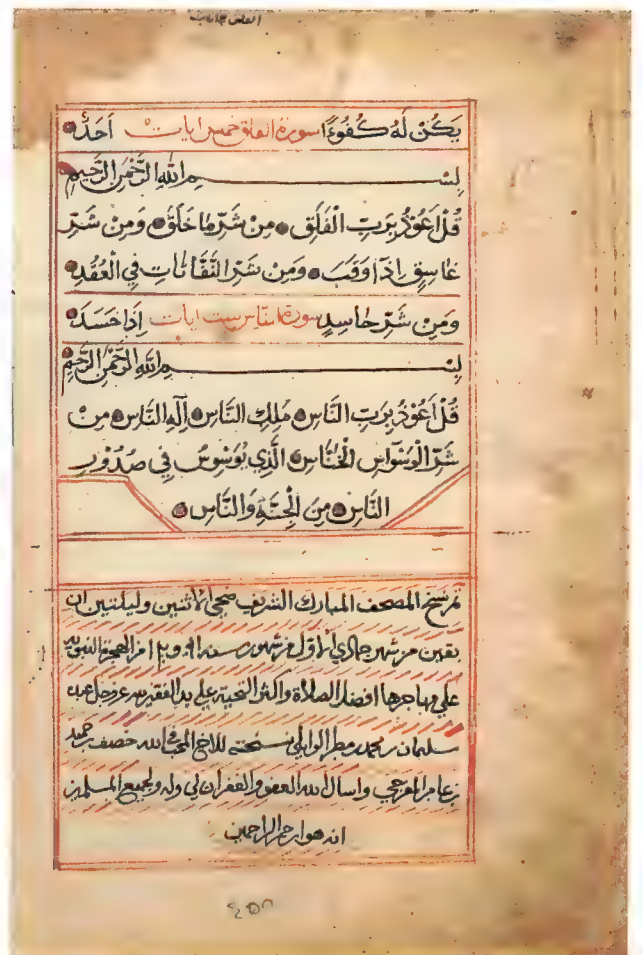 يَكُنْ لَهُ كُفُوًءا سورة الفلق خمس ايات اَحَدٌ
بِسْمِ اللهِ الرَّحْمٰنِ الرَّحِيمِ
قُلْ اَعُوْذُ بِرَبِّ الْفَلَقِ مِنْ شَرِّ مَا خَلَقَ وَمِنْ شَرِّ
غَاسِقٍ اِذَا وَقَبَ وَمِنْ شَرِّ النَّفَّاثَاتِ فِي الْعُقَدِ
وَمِنْ شَرِّ حَاسِدٍ سورة الناس ست ايات اِذَا حَسَدَ
بِسْمِ اللهِ الرَّحْمٰنِ الرَّحِيمِ
قُلْ اَعُوْذُ بِرَبِّ النَّاسِ مَلِكِ النَّاسِ اِلٰهِ النَّاسِ مِنْ
شَرِّ الْوَسْوَاسِ الْخَنَّاسِ الَّذِي يُوَسْوِسُ فِي صُدُوْرِ
النَّاسِ مِنَ الْجِنَّةِ وَالنَّاسِ
تم نسخ المصحف المبارك الشريف ضحى الاثنين وليلتين ان
بقين من شهر جمادي الاول من شهور سنة من الهجرة النبويه
علي مهاجرها افضل الصلاة واكثر التحية علي يد الفقير لله عز وجل عبده
سليمان بن محمد بن مطر الوايلي نسخته للاخ المحب في الله خصف بن حميد
بن عامر المفرجي واسال الله العفو والغفران لي وله ولجميع المسلمين
انه هو ارحم الراحمين